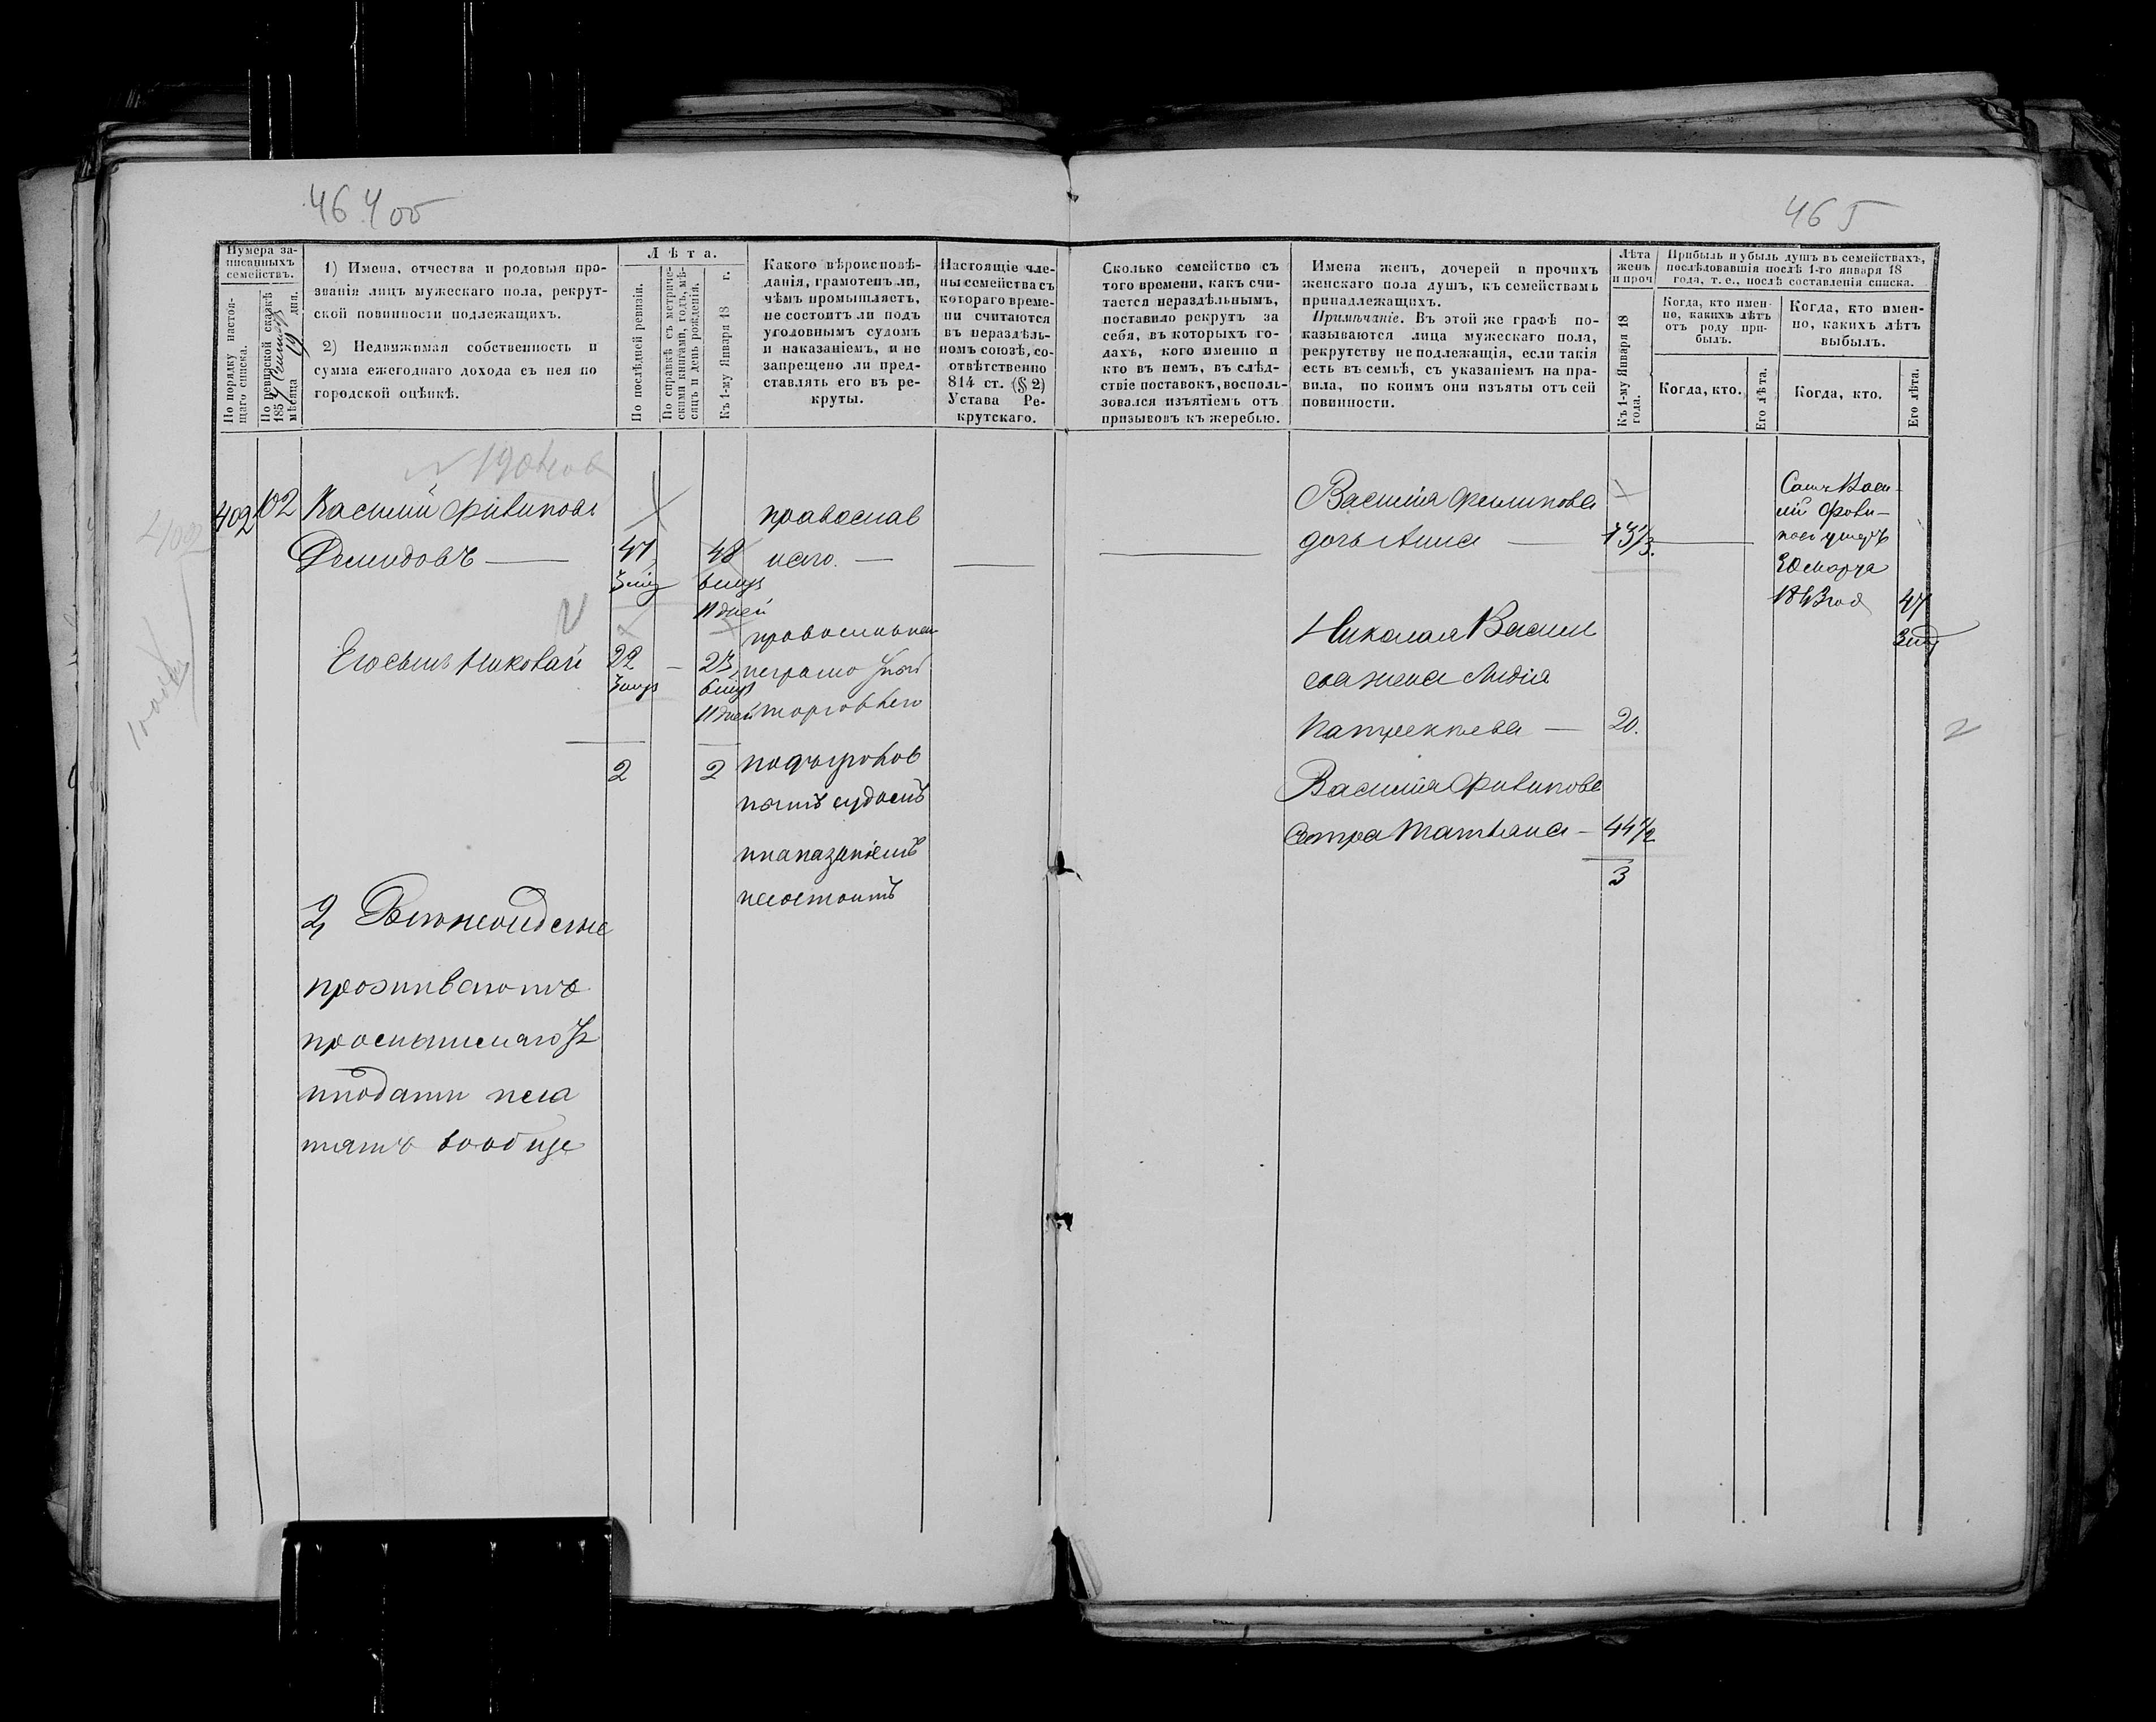 46 400
465
Нумера за-
писанныхъ
семействъ.
По порядку настоя-
щаго списка.
По ревизской сказкѣ
185
мѣсяца 19 дня.
1) Имена, отчества и родовыя про-
званія лицъ мужескаго пола, рекрут-
ской повинности подлежащихъ.
2) Недвижимая собственность и
сумма ежегоднаго дохода съ нея по
городской оцѣнкѣ.
Лѣта.
По послѣдней ревизіи.
По справкѣ съ метриче-
скими книгами, годъ, мѣ-
сяцъ и день рожденія.
Къ 1-му Января 18 г.
Какого вѣроисповѣ-
данія, грамотенъ ли,
чѣмъ промышляетъ,
не состоитъ ли подъ
уголовнымъ судомъ
и наказаніемъ, и не
запрещено ли пред-
ставлять его въ ре-
круты.
Настоящіе чле-
ны семейства съ
котораго време-
ни считаются
въ нераздѣль-
номъ союзѣ, со-
отвѣтственно
814 ст. (§ 2)
Устава Ре-
крутскаго.
Сколько семейство съ
того времени, какъ счи-
тается нераздѣльнымъ,
поставило рекрутъ за
себя, въ которыхъ го-
дахъ, кого именно и
кто въ немъ, въ слѣд-
ствіе поставокъ, восполь-
зовался изъятіемъ отъ
призывовъ къ жеребью.
Имена женъ, дочерей и прочихъ
женскаго пола душъ, къ семействамъ
принадлежащихъ.
Примѣчаніе. Въ этой же графѣ по-
казываются лица мужескаго пола,
рекрутству не подлежащія, если такія
есть въ семьѣ, съ указаніемъ на пра-
вила, по коимъ они изъяты отъ сей
повинности.
Лѣта
женъ
и проч
Къ 1-му Января 18
года.
Прибыль и убыль душъ въ семействахъ,
послѣдовавшія послѣ 1-го января 18
года, т. е., послѣ составленія списка.
Когда, кто имен-
но, какихъ лѣтъ
отъ роду при-
былъ.
Когда, кто имен-
но, какихъ лѣтъ
выбылъ.
Когда, кто.
Его лѣта.
Когда, кто.
Его лѣта.
402 102 Василій Филиповъ
Демидовъ 47 48
3 мѣц 6 мцъ
11 дней
православ
наго.
Его сынъ Николай 22 23
3 мцъ 6 мцъ
11 дней
православнаго
торговлею
2 2
подъ уголов
нымъ судомъ
инаказаніемъ
несостоитъ
2,
проживаютъ
иподати пла
тятъ вообще
Василія Филипова
дочь Анна 13 1/3.
Николая Васил
ева жена Лидія
Патрекѣева 20.
Василія Филипова
сестра Татьяна 44 1/2
3
Самъ Васи-
лій Фили-
повъ умеръ
20 марта
1863 года 47
3 мѣц